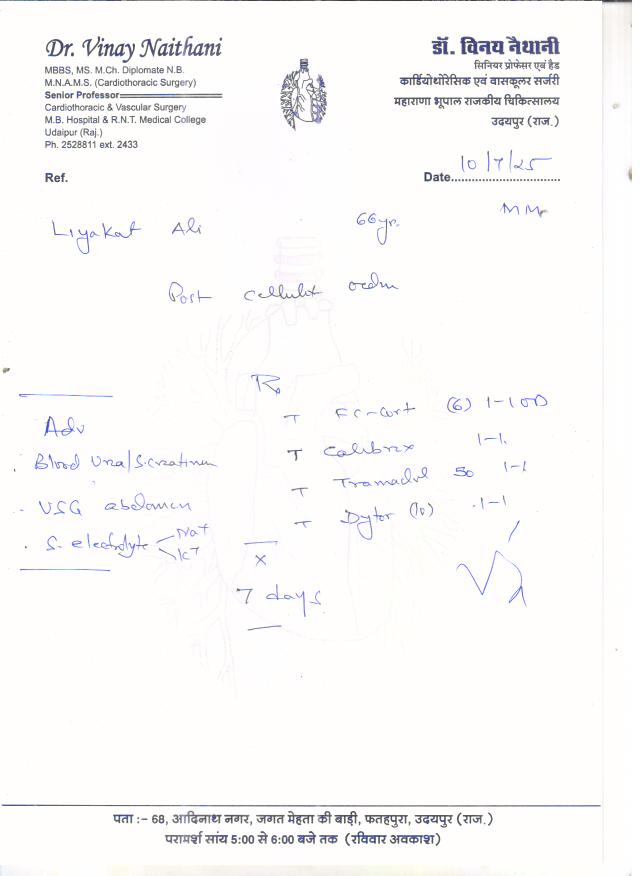 Dr. Vinay Naithani
MBBS, MS. M.Ch. Diplomate N.B.
M.N.A.M.S. (Cardiothoracic Surgery)
Senior Professor
Cardiothoracic & Vascular Surgery
M.B. Hospital & R.N.T. Medical College
Udaipur (Raj.)
Ph. 2528811 ext. 2433
डॉ. विनय नैथानी
सिनियर प्रोफेसर एवं हैड
कार्डियोथोरेसिक एवं वासकूलर सर्जरी
महाराणा भूपाल राजकीय चिकित्सालय
उदयपुर (राज.)
Ref.
Date 10/7/25
Liyakat Ali 66yr.
Post
Rx
Adv
T (6) 1-1 OD
T 1-1.
Blood Urea/S.creatinine
T Tramadol 50 1-1
USG abdomen
T Dytor (10) 1-1
S. electrolyte Na+
K+
x
7 days
पता :- 68, आदिनाथ नगर, जगत मेहता की बाड़ी, फतहपुरा, उदयपुर (राज.)
परामर्श सांय 5:00 से 6:00 बजे तक (रविवार अवकाश)